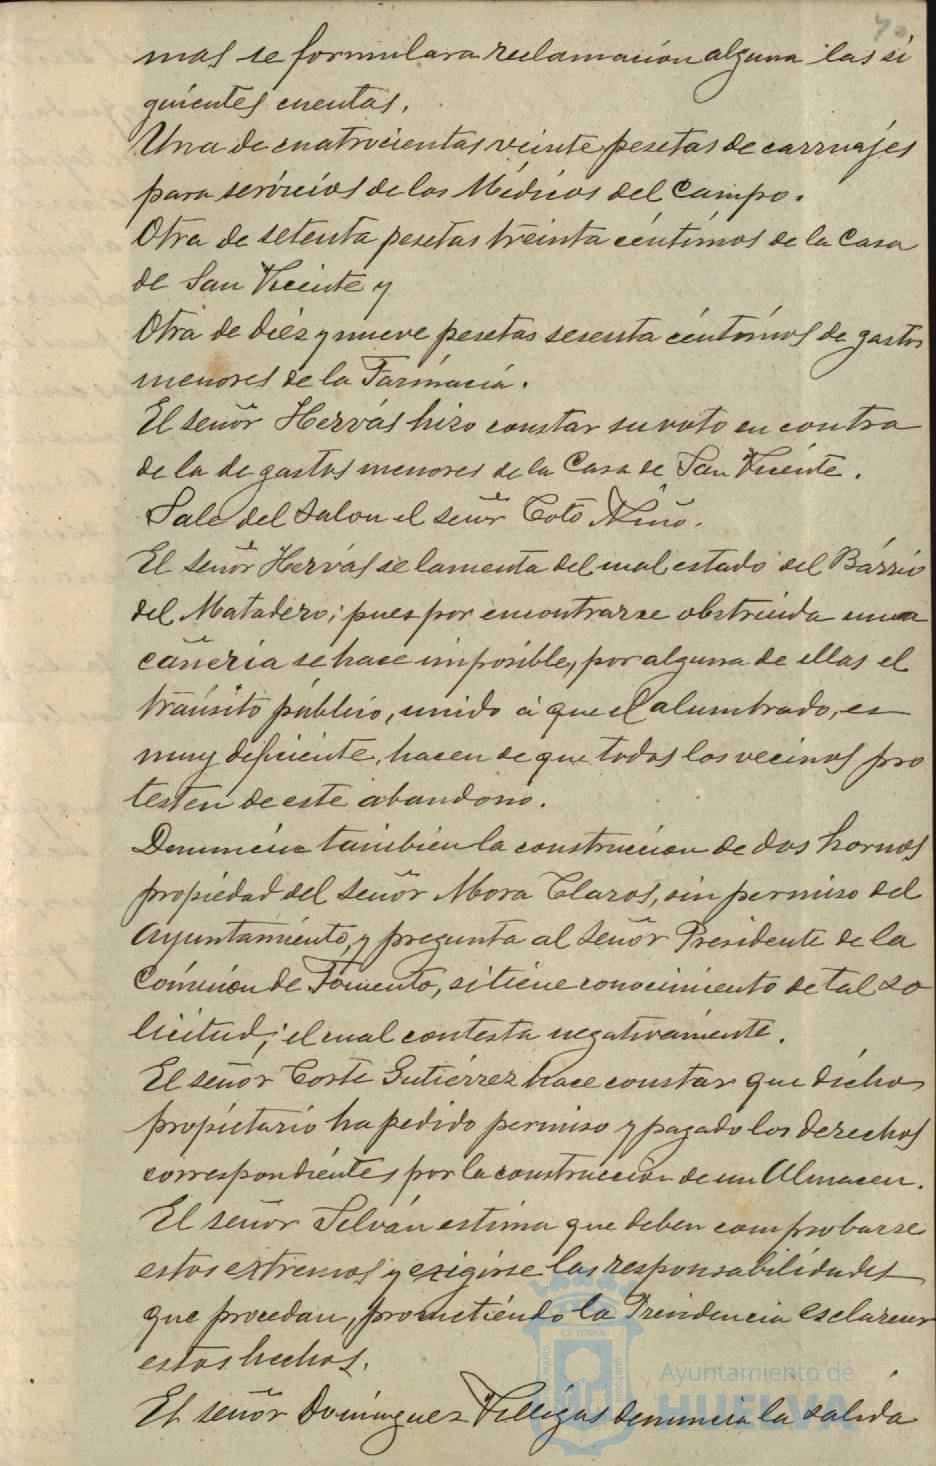 mas se formulara reclamacion alguna las si
guientes cuentas.
Una de cuatrocientas veinte pesetas de carruajes
para servicios de los Médicos del Campo.
Otra de setenta pesetas treinta céntimos de la Casa
de San Vicente y
Otra de diéz y nueve pesetas sesenta céntimos de gastos
menores de la Farmacia.
El señor Hervás hizo constar su voto en contra
de la de gastos menores de la Casa de San Vicente.
Sale del Salon el señor Coto Niño.
El señor Hervás se lamenta del mal estado del Bárrio
del Matadero; pues por encontrarse obstruida una
cañeria se hace imposible, por alguna de ellas el
tránsito público, unido á que el alumbrado, es
muy deficiente, hacen de que todos los vecinos pro
testen de este abandono.
Denuncia tambien la construccion de dos hornos
propiedad del señor Mora Claros, sin permiso del
Ayuntamiento, y pregunta al Señor Presidente de la
Comision de Fomento, si tiene conocimiento de tal so
licitud; el cual contesta negativamente.
El señor Corte Gutiérrez hace constar que dicho
propietario ha pedido permiso y pagado los derechos
correspondientes por la construccion de un Almacen.
El señor Selván estima que deben comprobarse
estos extremos y exigirse las responsabilidades
que procedan, prometiendo la Presidencia esclarecer
estos hechos.
El señor Dominguez Villegas denuncia la salida
Ayuntamiento de
HUELVA